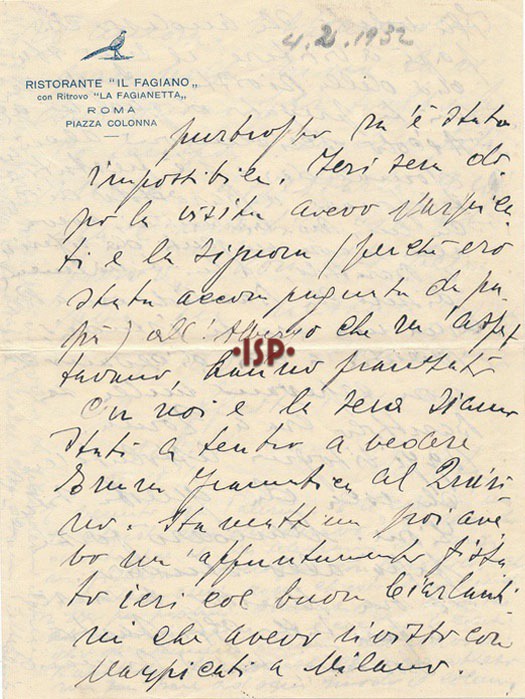 4.2.1932
RISTORANTE "IL FAGIANO„
con Ritrovo "LA FAGIANETTA„
ROMA
PIAZZA COLONNA
purtroppo m'è stato
impossibile. Ieri sera do
po la visita avevo Marpica
ti e la Signora (perché ero
stata accompagnata da pa
pà) all'Albergo che m'aspet
tavano, hanno pranzato
con noi e la sera siamo
stati a teatro a vedere
Emma Gramatica al Quiri
no. Stamattina poi ave
vo un'appuntamento fissa
to ieri col buon Ciarlanti
ni che avevo rivisto con
Marpicati a Milano.
ISP